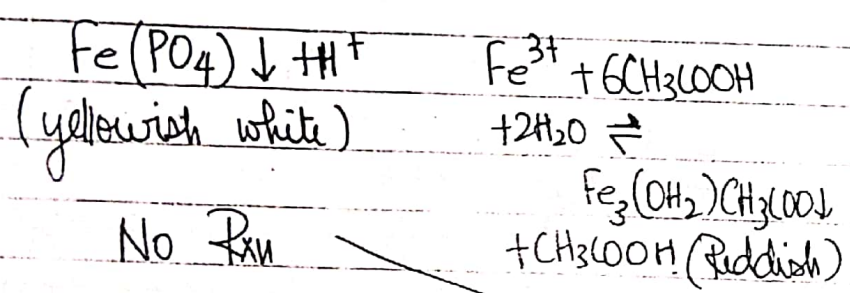 Fe(PO4)↓ +H+
(yellowish white)
No Rxn
Fe3+ + 6CH3COOH
+2H2O ⇌
Fe3(OH2)CH3COO↓
+CH3COOH (Reddish)